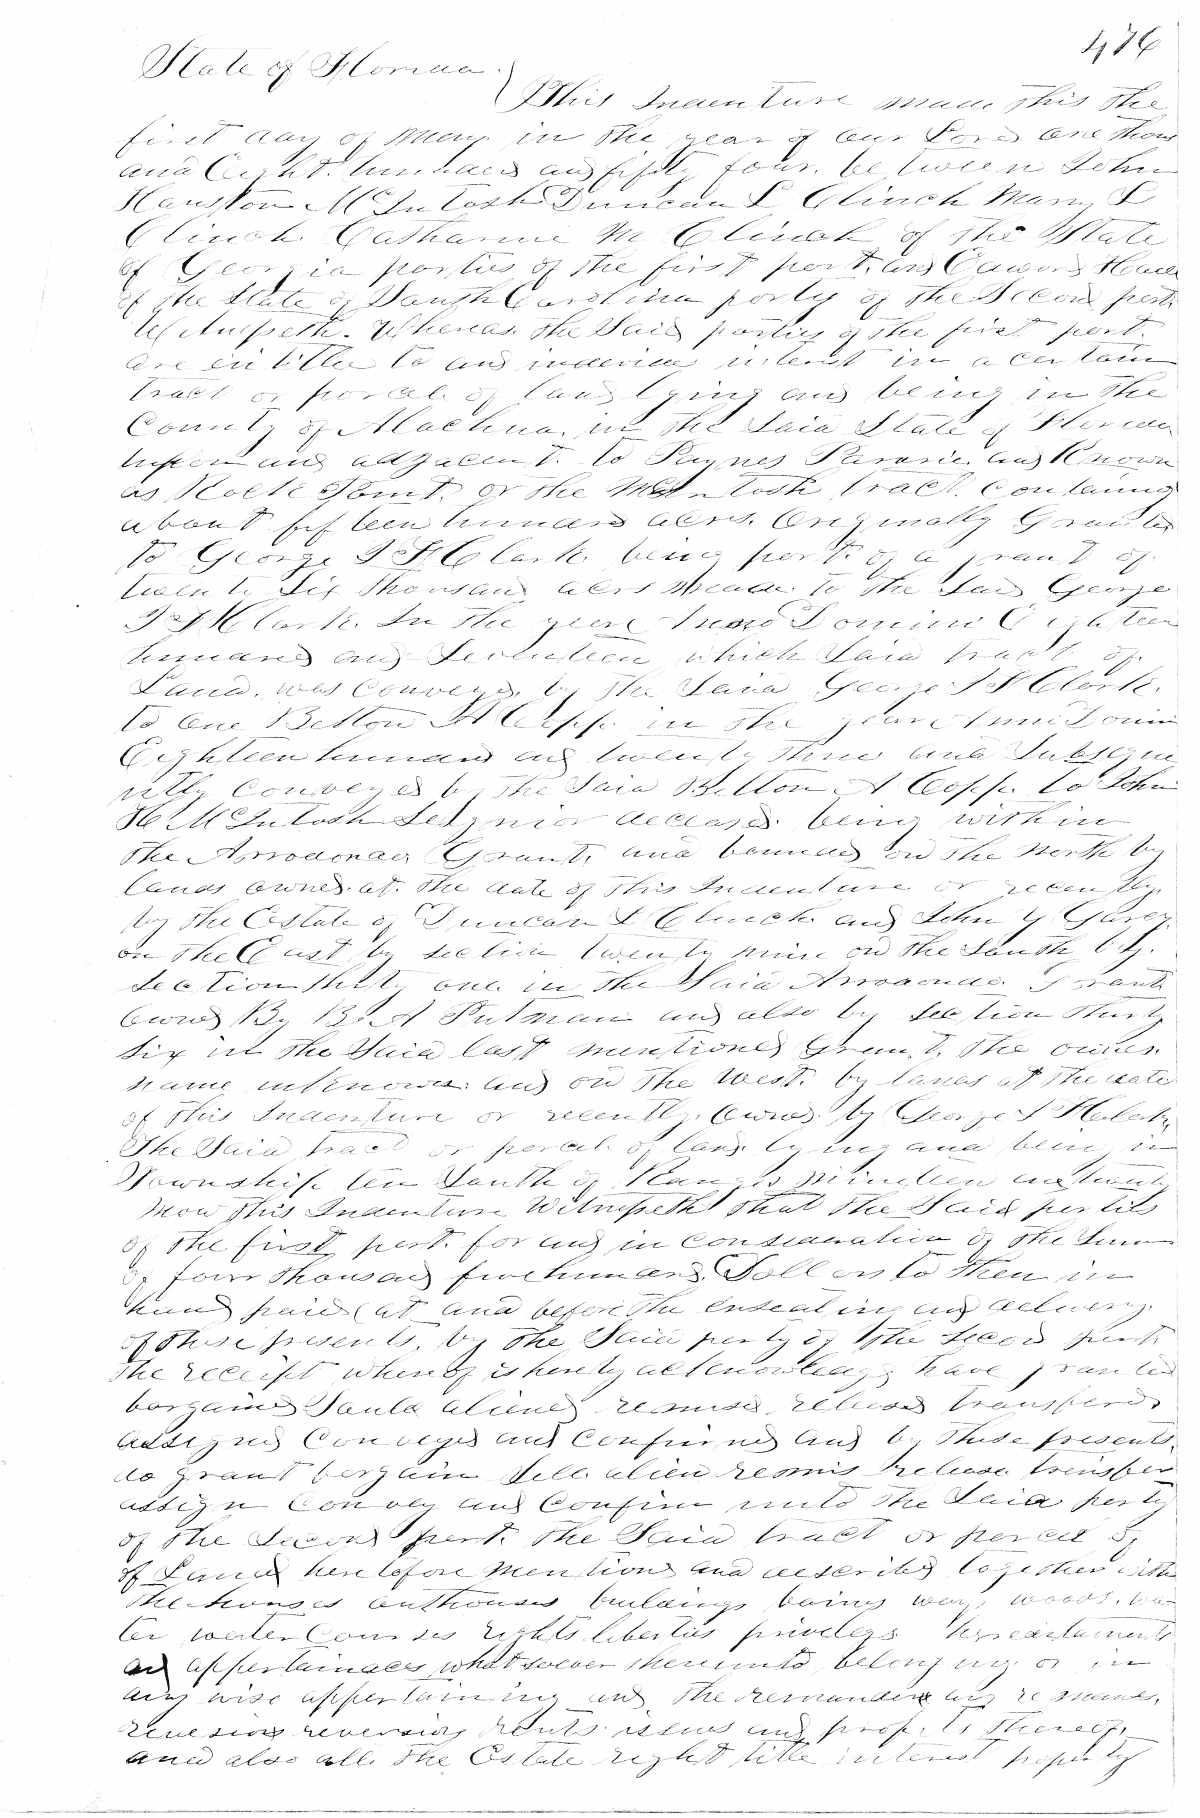 476
State of Florida
This Indenture made this the
first day of May in the year of our Lord one thous
and Eight hundred and fifty four, between John
Houston McIntosh Duncan L Clinch Mary L
Clinch Catharine M Clinch of the State
of Georgia parties of the first part, and Edward
of the State of South Carolina party of the Second part
Witnesseth. Whereas the Said parties of the first part.
are entitled to and interest in a certain
tract or parcel of land lying and being in the
County of Alachua in the Said State of Florida
upon and adjacent to Paynes Pararie and Known
as Rock Point, or the McIntosh tract containing
about fifteen hundred acres. Originally Granted
to George J F Clark being part of a grant of
twenty Six thousand acres made to the Said George
J F Clark. In the year Anno Domini Eighteen
hundred and Seventeen which Said tract of
Land, was conveyed by the Said George J F Clark.
to one Belton A Copp in the year Anno Domini
Eighteen hundred and twenty three and Subseque
ntly conveyed by the Said Belton A Copp to John
H McIntosh deceased being within
the Arrodondo Grant, and bounded on the North by
lands owned at the date of this Indenture or recently
by the Estate of Duncan L Clinch and John G
on the East by section twenty nine on the South by
Section thirty one in the Said Arrodondo Grant
owned By B A Putman and also by section thirty
six in the Said last mentioned Grant, the owners
name unknown and on the West, by lands at the date
of this Indenture or recently owned by George J F Clark
The Said tract or parcel of land lying and being in
Township ten South of Ranges Nineteen and twenty
Now this Indenture Witnesseth that the Said parties
of the first part for and in consideration of the Sum
of four thousand five hundred Dollars to them in
hand paid at and before the ensealing and delivery
of these presents, by the Said party of the Second part
the receipt whereof is hereby acknowledged have granted
bargained aliened remised released transferred
assigned Conveyed and Confirmed and by these presents.
do grant bargain Sell alien remis release transfer
assign Convey and Confirm unto the Said party
of the Second part. the Said tract or parcel of
of Land heretofore mentioned and described together with
the houses outhouses buildings ways, woods, wa
ter water courses rights liberties
and whatsoever thereunto belonging or in
any wise appertaining and the
reversions rents issues and profits thereof,
and also all the Estate right title interest property